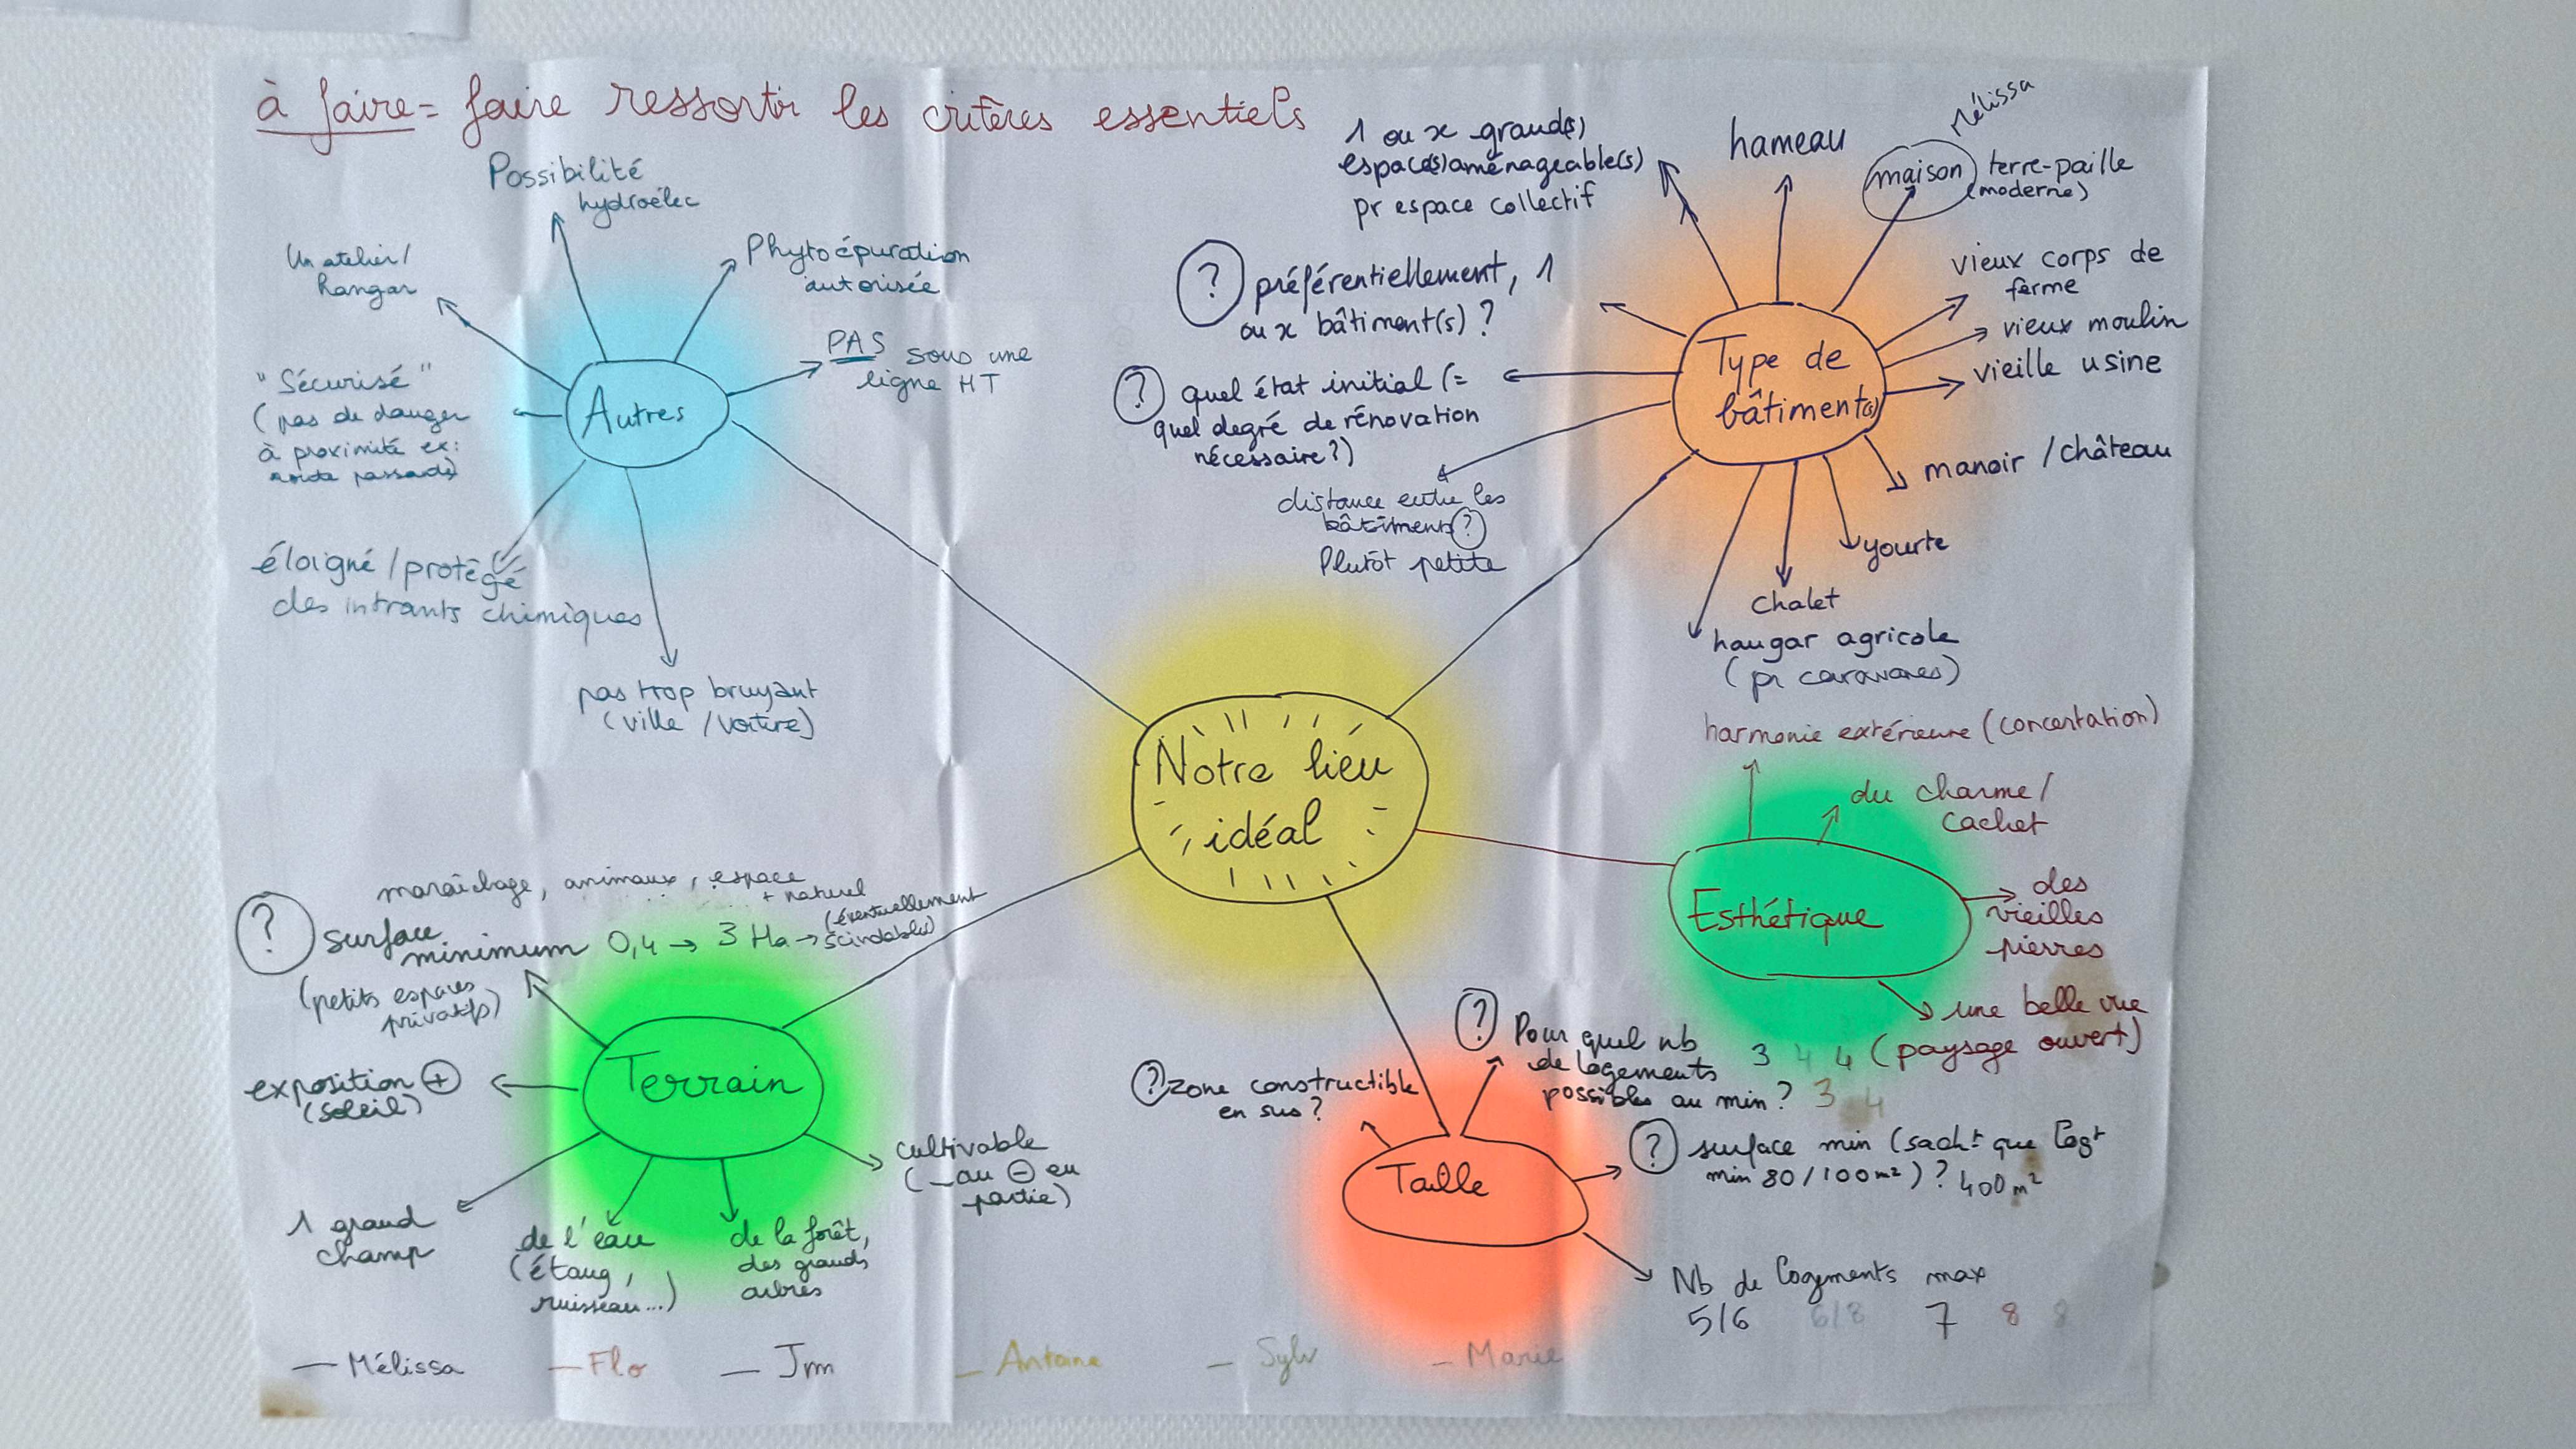 à faire = faire ressortir les critères essentiels
Possibilité
hydroélec
Un atelier/
hangar
Phytoépuration
autorisée
"Sécurisé"
(pas de danger
à proximité ex:
route passade)
PAS sous une
ligne HT
Autres
éloigné / protégé
des intrants chimiques
pas trop bruyant
(ville / voiture)
1 ou x grand(s)
espace(s) aménageable(s)
pr espace collectif
hameau
Mélissa
maison terre-paille
(moderne)
? préférentiellement, 1
ou x bâtiment(s) ?
vieux corps de
ferme
vieux moulin
vieille usine
? quel état initial (=
quel degré de rénovation
nécessaire ?)
Type de
bâtiment(s)
manoir / château
distance entre les
bâtiments ?
Plutôt petite
yourte
chalet
hangar agricole
(pr caravanes)
Notre lieu
idéal
harmonie extérieure (concertation)
du charme /
cachet
Esthétique
des
vieilles
pierres
une belle vue
(paysage ouvert)
maraîchage, animaux, espace
+ naturel
? surface
minimum 0,4 → 3 Ha → (éventuellement
scindable)
(petits espaces
privatifs)
Terrain
exposition +
(soleil)
1 grand
champ
de l'eau
(étang,
ruisseau...)
de la forêt,
des grands
arbres
cultivable
(_au - en
partie)
? zone constructible
en sus ?
? Pour quel nb
de logements
possibles au min ?
3 4 4
3 4
Taille
? surface min (sacht que logt
min 80/100 m²) ? 400 m²
Nb de logements max
5/6 6/8 7 8 8
— Mélissa — Flo — Jm — Antoine — Sylv — Marie